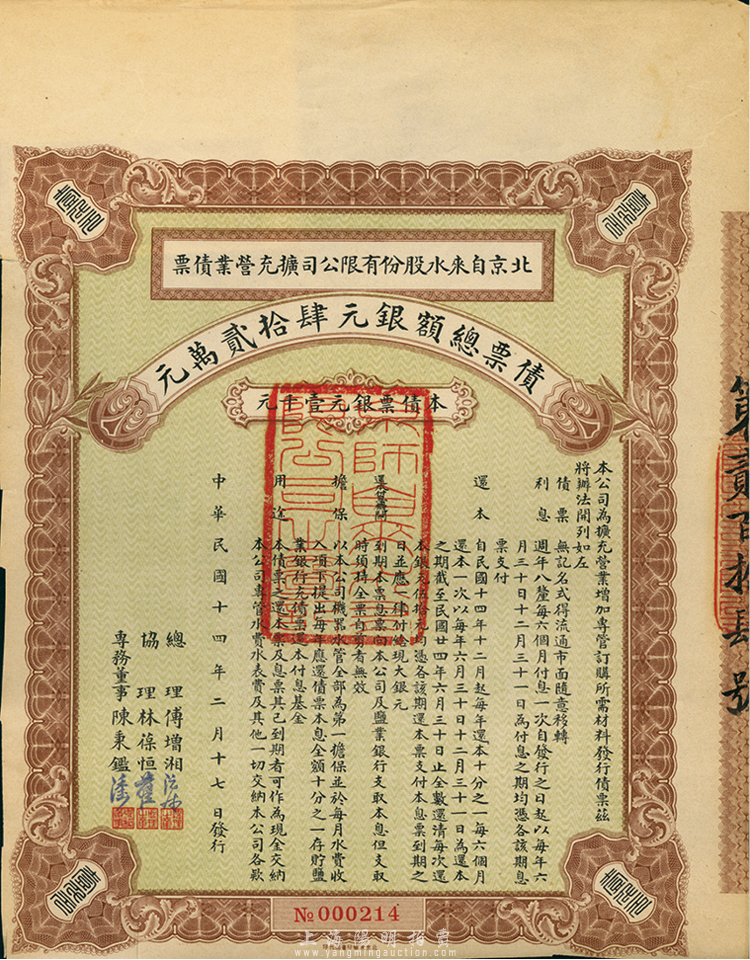 北京自來水股份有限公司擴充營業債票
債票總額銀元肆拾貳萬元
本債票銀元壹千元
本公司為擴充營業增加專管訂購所需材料發行債票茲
將辦法開列如左
債票 無記名式得流通市面隨意移轉
利息 週年八釐每六個月付息一次自發行之日起以每年六
月三十日十二月三十一日為付息之期均憑各該期息
票支付
還本 自民國十四年十二月起每年還本十分之一每六個月
還本一次以每年六月三十日十二月三十一日為還本
之期截至民國廿四年六月三十日止全數還清每次還
本銀元伍拾元均憑各該期還本票支付本息票到期之
日並應一律付給現大銀元
到期本票息票向本公司及鹽業銀行支取本息但支取
時須持全票自剪者無效
擔保 以本公司機器水管全部為第一擔保並於每月水費收
入項下提出每年應還債票本息全額十分之一存貯鹽
業銀行充債票還本付息基金
用途 本債票之還本票及息票其已到期者可作為現金交納
本公司專管水費水表費及其他一切交納本公司各款
中華民國十四年二月十七日發行
總理傅增湘
協理林葆恒
專務董事陳秉鑑
第貳百拾肆號
No 000214
上海陽明拍賣
www.yangmingauction.com